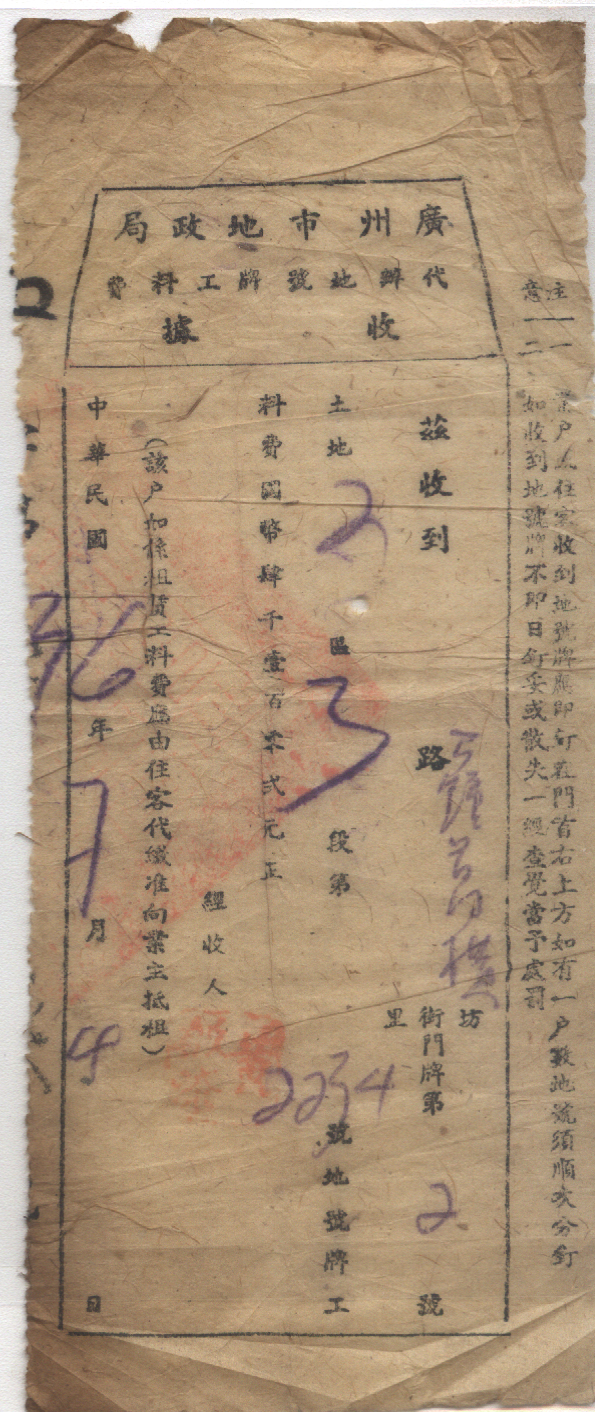 廣州市地政局
代辦地號牌工料費
收據
注意
一、業戶或住客收到地號牌應即釘在門首右上方如有一戶數地號須順次分釘
二、如收到地號牌不即日釘妥或散失一經查覺當予處罰
茲收到 路 坊街里門牌第2號
土地2區3段第2234號地號牌工
料費國幣肆千壹百零弍元正
經收人
(該戶如係租賃工料費應由住客代繳准向業主抵租)
中華民國36年7月4日